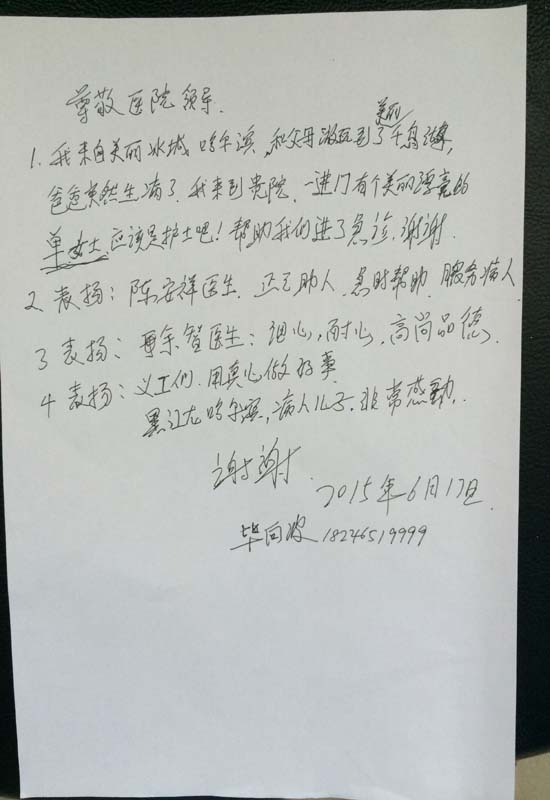 尊敬医院领导.
1. 我来自美丽冰城哈尔滨,和父母游玩到了美丽千岛湖,
爸爸突然生病了.我来到贵院.一进门有个美丽漂亮的
单女士.应该是护士吧!帮助我们进了急诊.谢谢.
2 表扬:陈安祥医生.正己助人.急时帮助.服务病人
3 表扬:余智医生:细心,耐心,高尚品德.
4 表扬:义工们.用真心做好事
黑江龙哈尔滨,病人儿子.非常感动.
谢谢.
2015年6月17日.
毕向波 18246519999